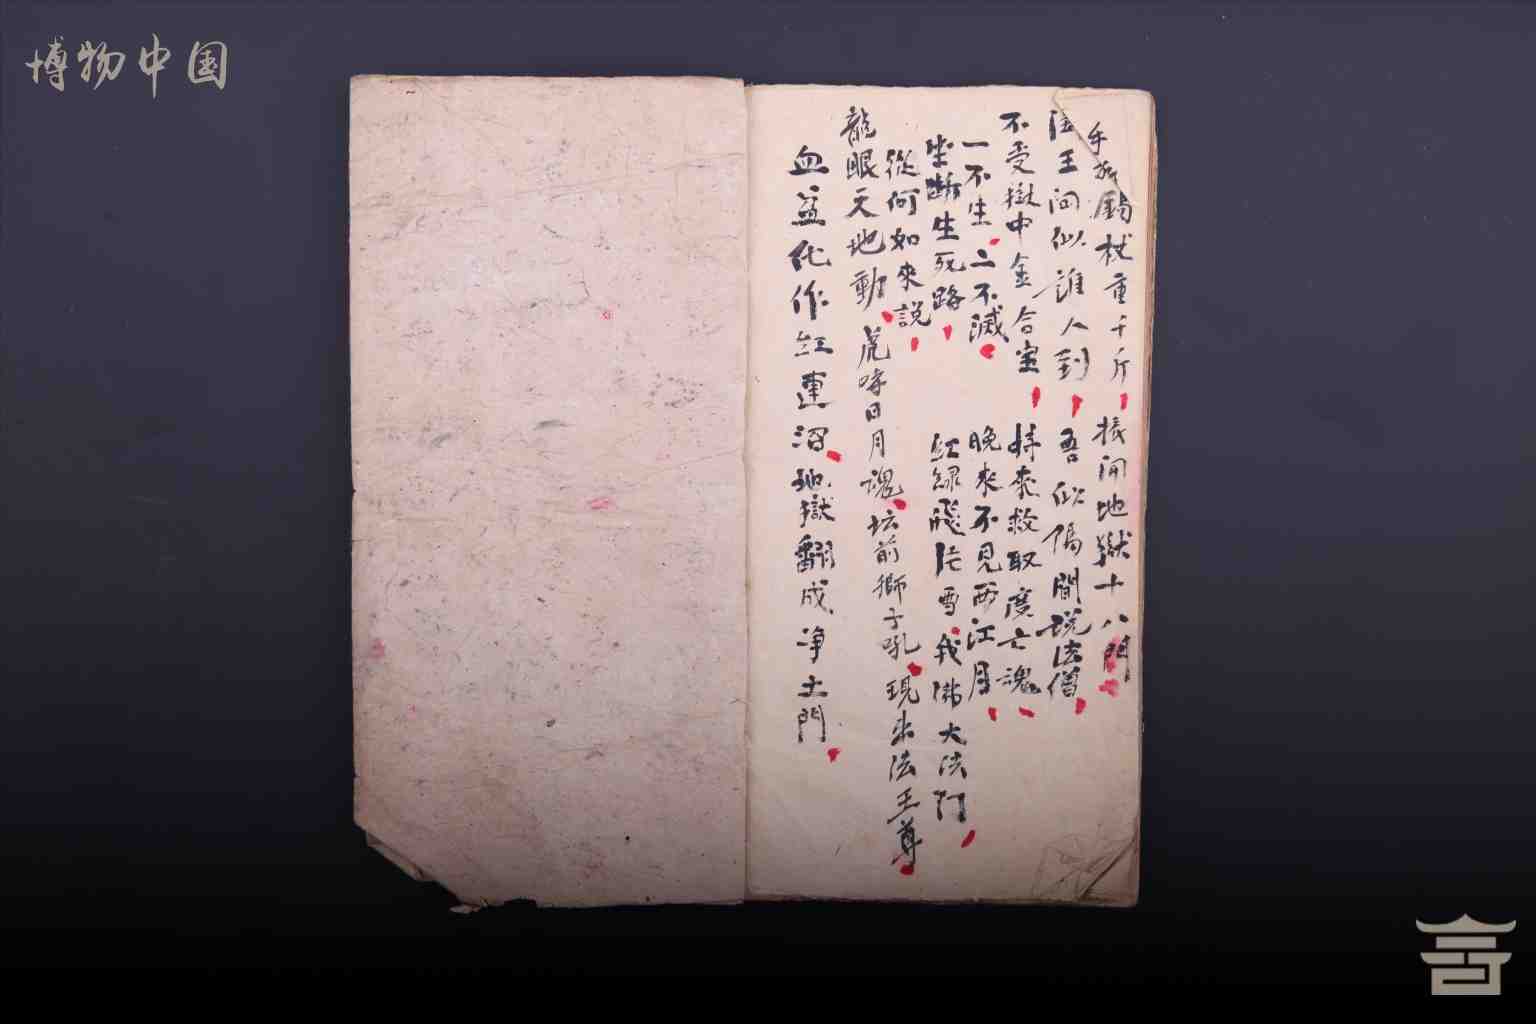 博物中国
手拡錫杖重千斤 振開地獄十八門
法王问似誰人到 吾似偈間説法僧
不受獄中金合宝 持来救取度亡魂
一不生二不滅 晚来不見西江月
坐断生死路 红緑飛茫雪我佛大法门
從何如來說
龍眼天地動虎哮日月魂坛前獅子吼現出法王尊
血盆化作红連沼地獄翻成净土門